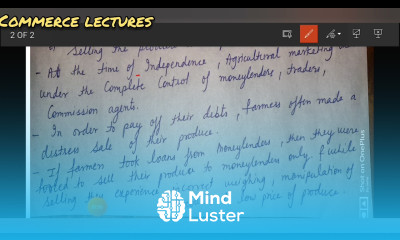 COMMERCE LECTURES
2 OF 2
Selling the produce
- At the time of Independence, Agricultural marketing
under the Complete Control of moneylenders, traders,
Commission agents.
- In order to pay off their debts, farmers often made a
distress sale of their produce.
- If farmers took loans from moneylenders, then they were
forced to sell their produce to moneylenders only & while
selling they experience incorrect weighing, manipulation of
low price of produce.
Mind
Luster
Shot on OnePlus